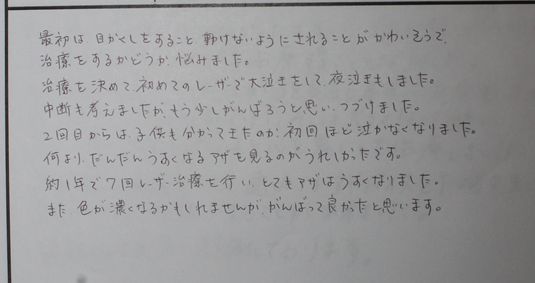 最初は、目かくしをすること、動けないようにされることがかわいそうで、
治療をするかどうか、悩みました。
治療を決めて、初めてのレーザーで大泣きをして、夜泣きもしました。
中断も考えましたが、もう少しがんばろうと思い、つづけました。
2回目からは、子供も分かってきたのか、初回ほど泣かなくなりました。
何より、だんだんうすくなるアザを見るのがうれしかったです。
約1年で7回レーザー治療を行い、とてもアザはうすくなりました。
また、色が濃くなるかもしれませんが、がんばって良かったと思います。